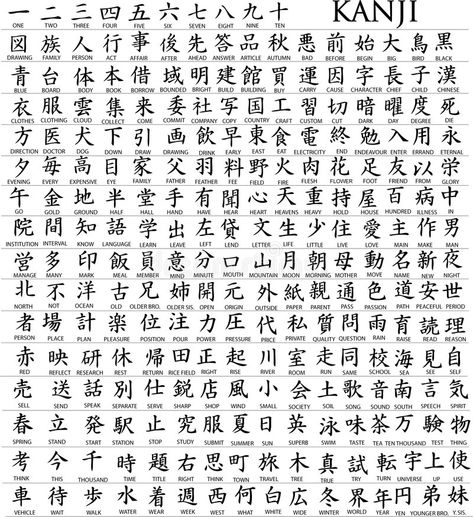 一 二 三 四 五 六 七 八 九 十 KANJI
ONE TWO THREE FOUR FIVE SIX SEVEN EIGHT NINE TEN
図 族 人 行 事 後 先 答 品 秋 悪 前 始 大 鳥 黒
DRAWING FAMILY PERSON ACT AFFAIR AFTER AHEAD ANSWER ARTICLE AUTUMN BAD BEFORE BEGIN BIG BIRD BLACK
青 台 体 本 借 域 明 建 館 買 運 因 字 長 子 漢
BLUE BOARD BODY BOOK BORROW BOUNDED BRIGHT BUILD BUILDING BUY CARRY CAUSE CHARACTER CHIEF CHILD CHINESE
衣 服 雲 集 来 委 社 写 国 工 習 切 暗 曜 度 死
CLOTHES CLOTHING CLOUD COLLECT COME COMMIT COMPANY COPY COUNTRY CRAFT CUT DARK DAY DEGREE DIE
方 医 犬 下 引 画 飲 早 東 食 電 終 勉 入 用 永
DIRECTION DOCTOR DOG DOWN DRAW DRAWING DRINK EARLY EAST EAT ELECTRICITY END ENDEAVOUR ENTER ERRAND ETERNAL
夕 毎 高 目 家 父 羽 料 野 火 肉 花 足 友 以 栄
EVENING EVERY EXPENSIVE EYE FAMILY FATHER FEATHER FEE FIELD FIRE FLESH FLOWER FOOT FRIEND FROM GLORY
午 金 地 半 堂 手 有 聞 心 天 重 持 屋 百 病 中
GO GOLD GROUND HALF HALL HAND HAVE HEAR HEART HEAVENS HEAVY HOLD HOUSE HUNDRED ILLNESS IN
院 間 知 語 学 出 左 貸 文 生 少 住 愛 主 作 男
INSTITUTION INTERVAL KNOW LANGUAGE LEARN LEAVE LEFT LEND LETTER LIFE LITTLE LIVE LOVE MAIN MAKE MAN
営 多 印 飯 員 意 分 口 山 月 朝 母 動 名 新 夜
MANAGE MANY MARK MEAL MEMBER MIND MINUTE MOUTH MOUNTAIN MOON MORNING MOTHER MOVE NAME NEW NIGHT
北 不 洋 古 兄 姉 開 元 外 紙 親 通 色 道 安 世
NORTH NOT OCEAN OLD OLDER BRO. OLDER SIS. OPEN ORIGIN OUTSIDE PAPER PARENT PASS PASSION PATH PEACEFUL PERIOD
者 場 計 楽 位 注 力 圧 代 私 質 問 雨 育 読 理
PERSON PLACE PLAN PLEASURE POSITION POUR POWER PRESSURE PRICE PRIVATE QUALITY QUESTION RAIN RAISE READ REASON
赤 映 研 休 帰 田 正 起 川 室 走 同 校 海 見 自
RED REFLECT RESEARCH REST RETURN RICE FIELD RIGHT RISE RIVER ROOM RUN SAME SCHOOL SEA SEE SELF
売 送 話 別 仕 鋭 店 風 小 会 土 歌 音 南 言 気
SELL SEND SPEAK SEPARATE SERVE SHARP SHOP WIND SMALL SOCIETY SOIL SONG SOUND SOUTH SPEECH SPIRIT
春 立 発 駅 止 究 服 夏 日 英 泳 味 茶 万 験 物
SPRING STAND START STATION STOP STUDY SUBMIT SUMMER SUN SUPERB SWIM TASTE TEA TEN THOUSAND TEST THING
考 今 千 時 題 右 思 町 旅 木 真 試 転 宇 上 使
THINK THIS THOUSAND TIME TITLE RIGHT THINK TOWN TRAVEL TREE TRUE TRY TURN UNIVERSE UP USE
車 待 歩 水 着 週 西 何 白 広 冬 界 年 円 弟 妹
VEHICLE WAIT WALK WATER WEAR WEEK WEST WHAT WHITE WIDE WINTER WORLD YEAR YEN YOUNGER BRO. Y.SIS.